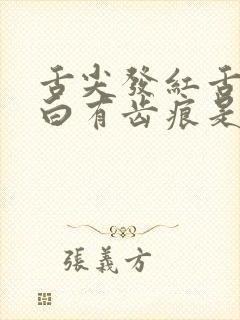 舌尖發紅舌
白有齿痕是
張義方